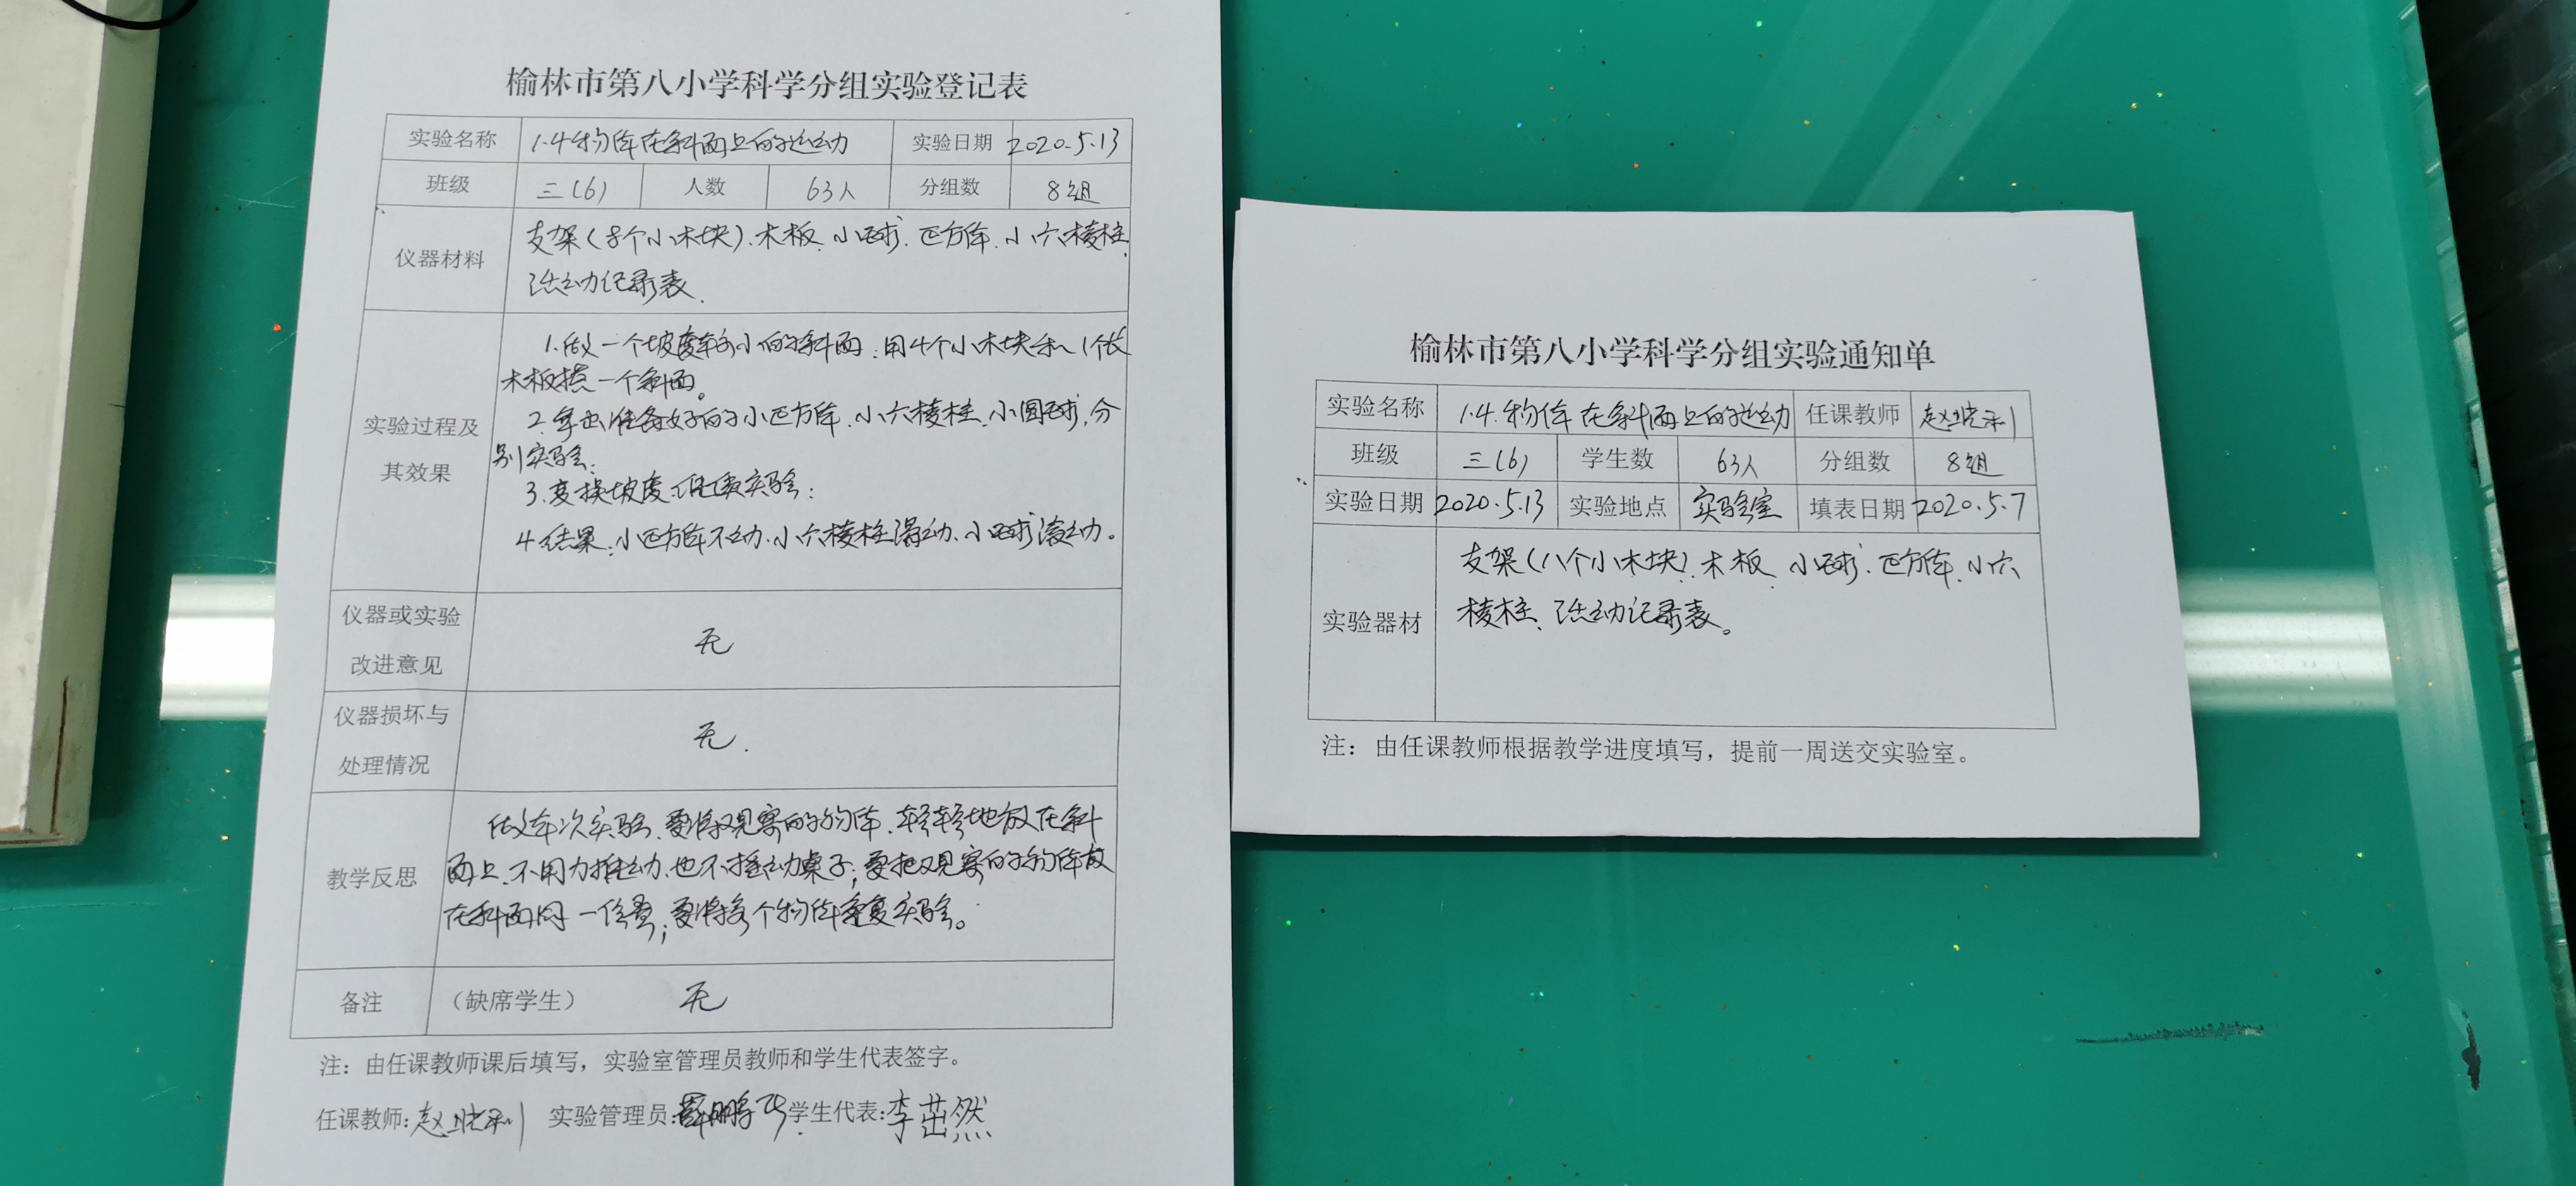 榆林市第八小学科学分组实验登记表
实验名称 1.4物体在斜面上的运动 实验日期 2020.5.13
班级 三(6) 人数 63人 分组数 8组
仪器材料 支架(8个小木块).木板.小球.正方体.小六棱柱.
活动记录表.
实验过程及其效果
1.做一个坡度较小的斜面:用4个小木块和1个长
木板搭一个斜面。
2.拿出准备好的小正方体.小六棱柱.小圆球,分
别实验;
3.变换坡度,继续实验:
4.结果:小正方体不动、小六棱柱滑动、小球滚动。
仪器或实验
改进意见 无
仪器损坏与
处理情况 无.
教学反思
做本次实验、要将观察的物体、轻轻地放在斜
面上、不用力推动、也不摇动桌子;要把观察的物体放
在斜面同一位置;要将各个物体重复实验。
备注 (缺席学生) 无
注:由任课教师课后填写,实验室管理员教师和学生代表签字。
任课教师:赵晓利 实验管理员: 学生代表:李茁然
榆林市第八小学科学分组实验通知单
实验名称 1.4.物体在斜面上的运动 任课教师 赵晓利
班级 三(6) 学生数 63人 分组数 8组
实验日期 2020.5.13 实验地点 实验室 填表日期 2020.5.7
实验器材 支架(八个小木块).木板.小球.正方体.小六
棱柱、活动记录表。
注:由任课教师根据教学进度填写,提前一周送交实验室。